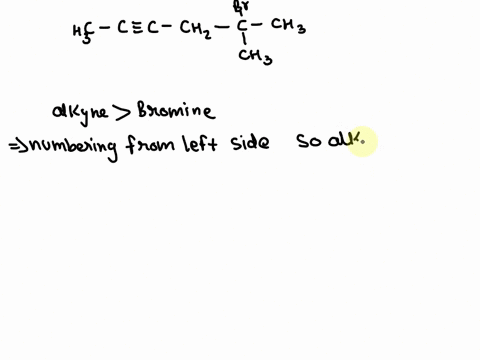 Br
H3C - C ≡ C - CH2 - C - CH3
CH3
alkyne > Bromine
⇒ numbering from left side so alk.